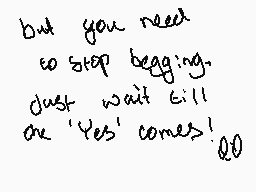 but you need
to stop begging.
Just wait till
the 'Yes' comes!